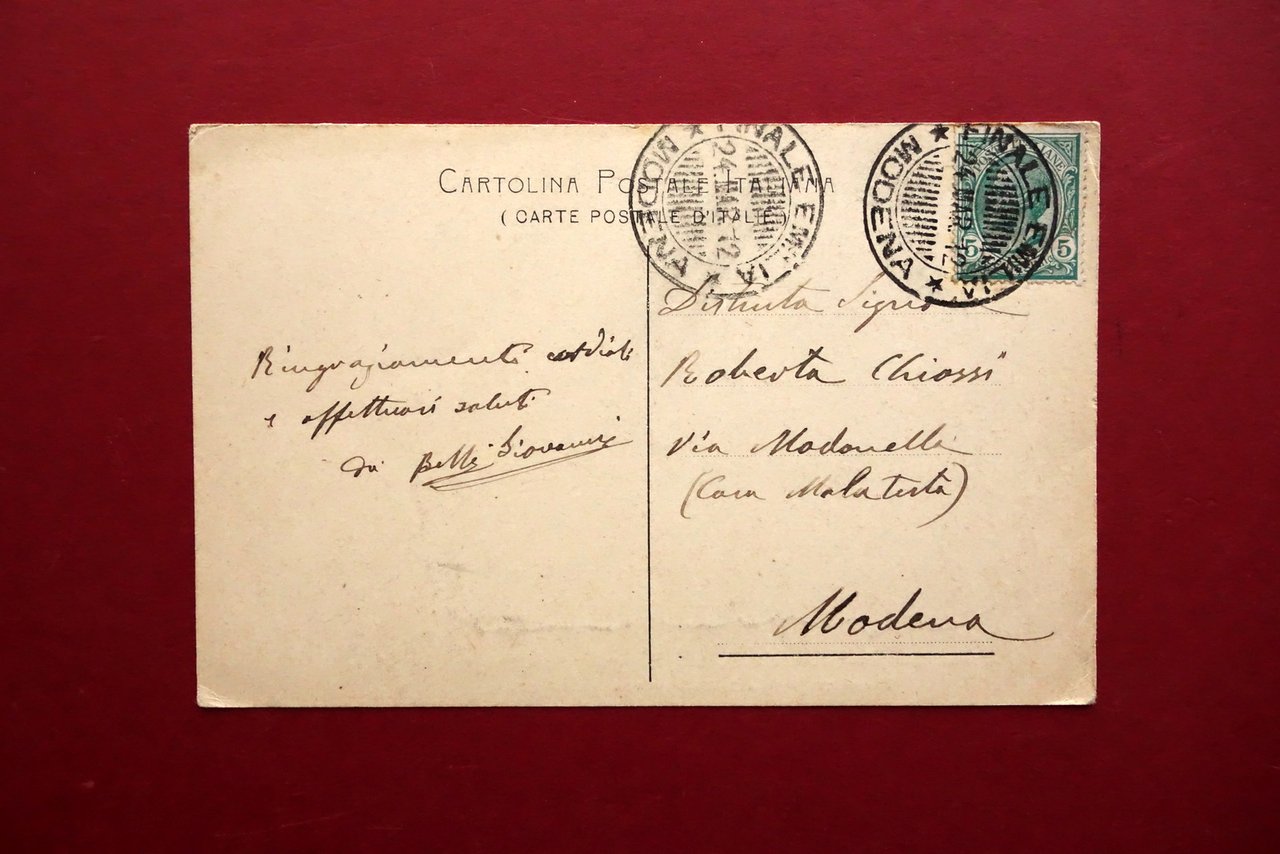 CARTOLINA POSTALE ITALIANA
(CARTE POSTALE D'ITALIE)
FINALE EMILIA
24 MAR 12
MODENA
FINALE EMILIA
24 MAR 12
MODENA
5 5
Distinta Signa
Roberta Chiossi
Via Modonella
(Casa Malatesta)
Modena
Ringraziamenti cordiali
e affettuosi saluti
da Giovanni